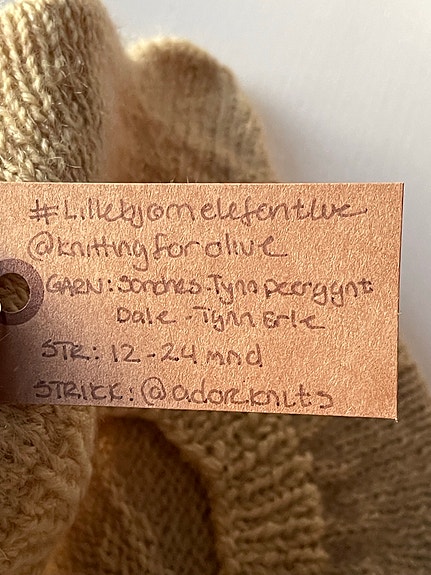 #Lillebjørnelefantlue
@knittingforolive
GARN: Sandnes-Tynn peergynt
Dale - Tynn Erle
STR: 12-24 mnd
STRIKK: @adorknits